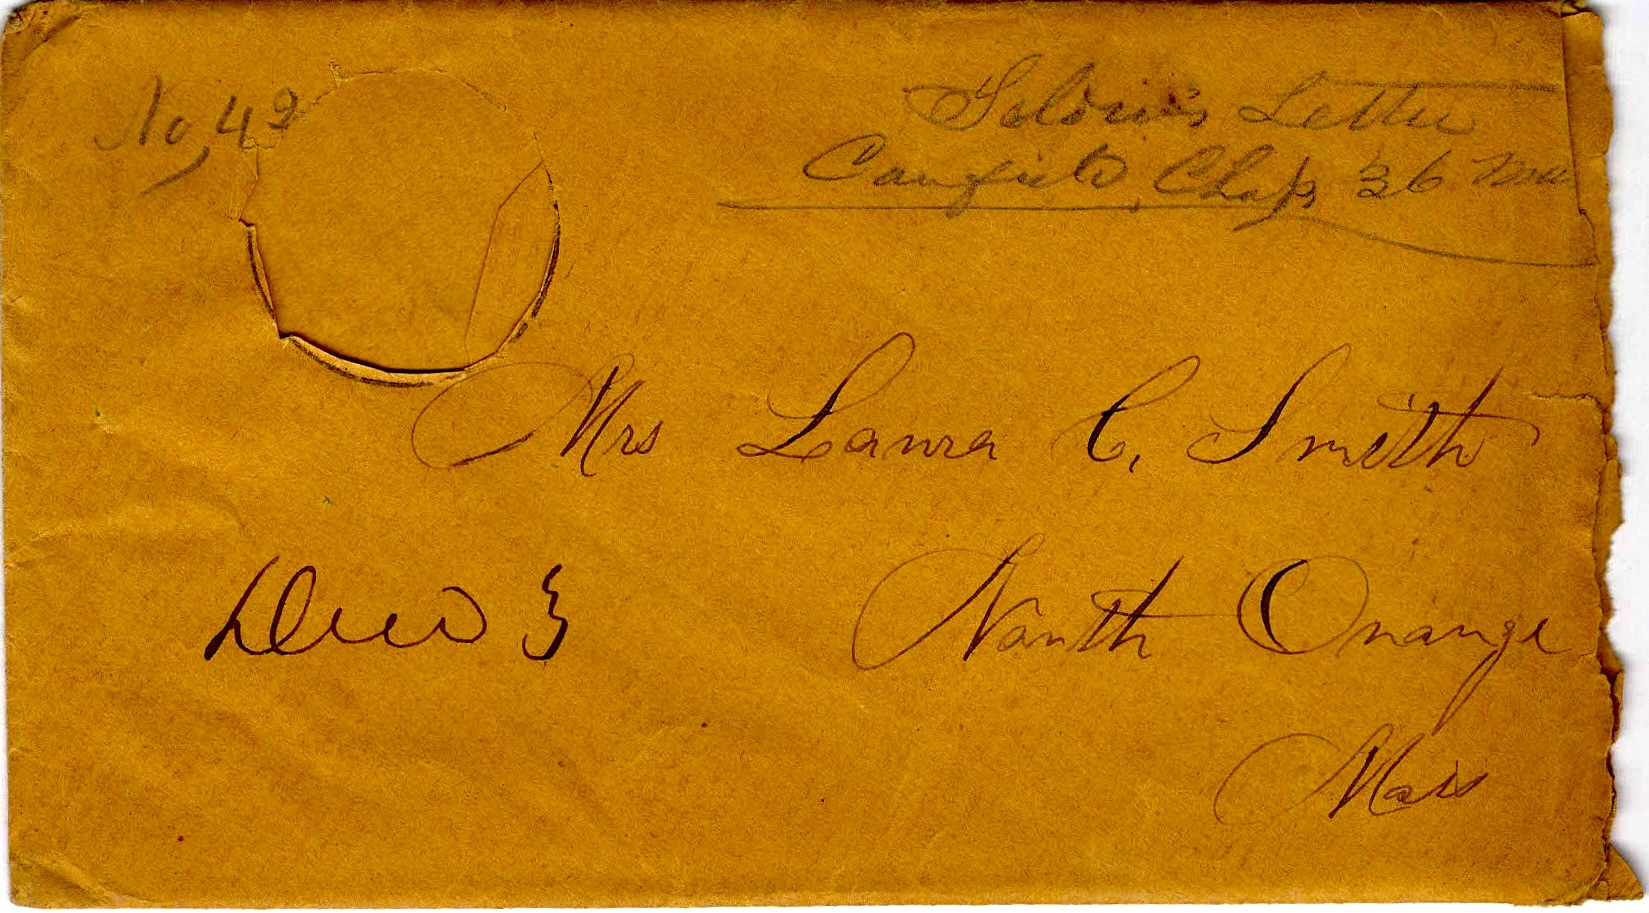 No, 42
Soldier's Letter
Canfield Chap, 36 Mass
Mrs Laura C. Smith
Due 3
North Orange
Mass